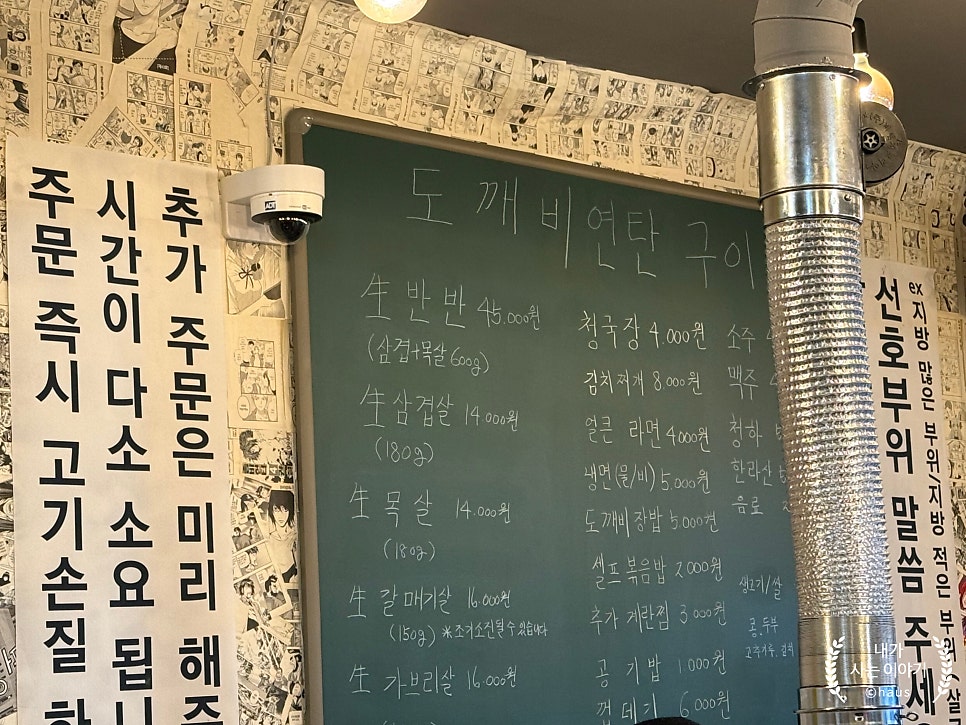 주문 즉시 고기손질 하
시간이 다소 소요 됩니
추가 주문은 미리 해주
도깨비연탄 구이
生 반반 45.000원
(삼겹+목살 600g)
生 삼겹살 14.000원
(180g)
生 목살 14.000원
(180g)
生 갈매기살 16.000원
(150g) ※조기소진될 수 있습니다
生 가브리살 16.000원
청국장 4.000원
김치찌개 8.000원
얼큰 라면 4000원
냉면(물/비) 5.000원
도깨비장밥 5.000원
셀프 볶음밥 2.000원
추가 계란찜 3.000원
공기밥 1.000원
껍데기 6.000원
소주 4
맥주 4
청하
한라산
음료
생고기/쌀
콩.두부
고추가루.김치
ex 지방 많은 부위/지방 적은 부위(살
선호부위 말씀 주세
내가
사는 이야기
©haus